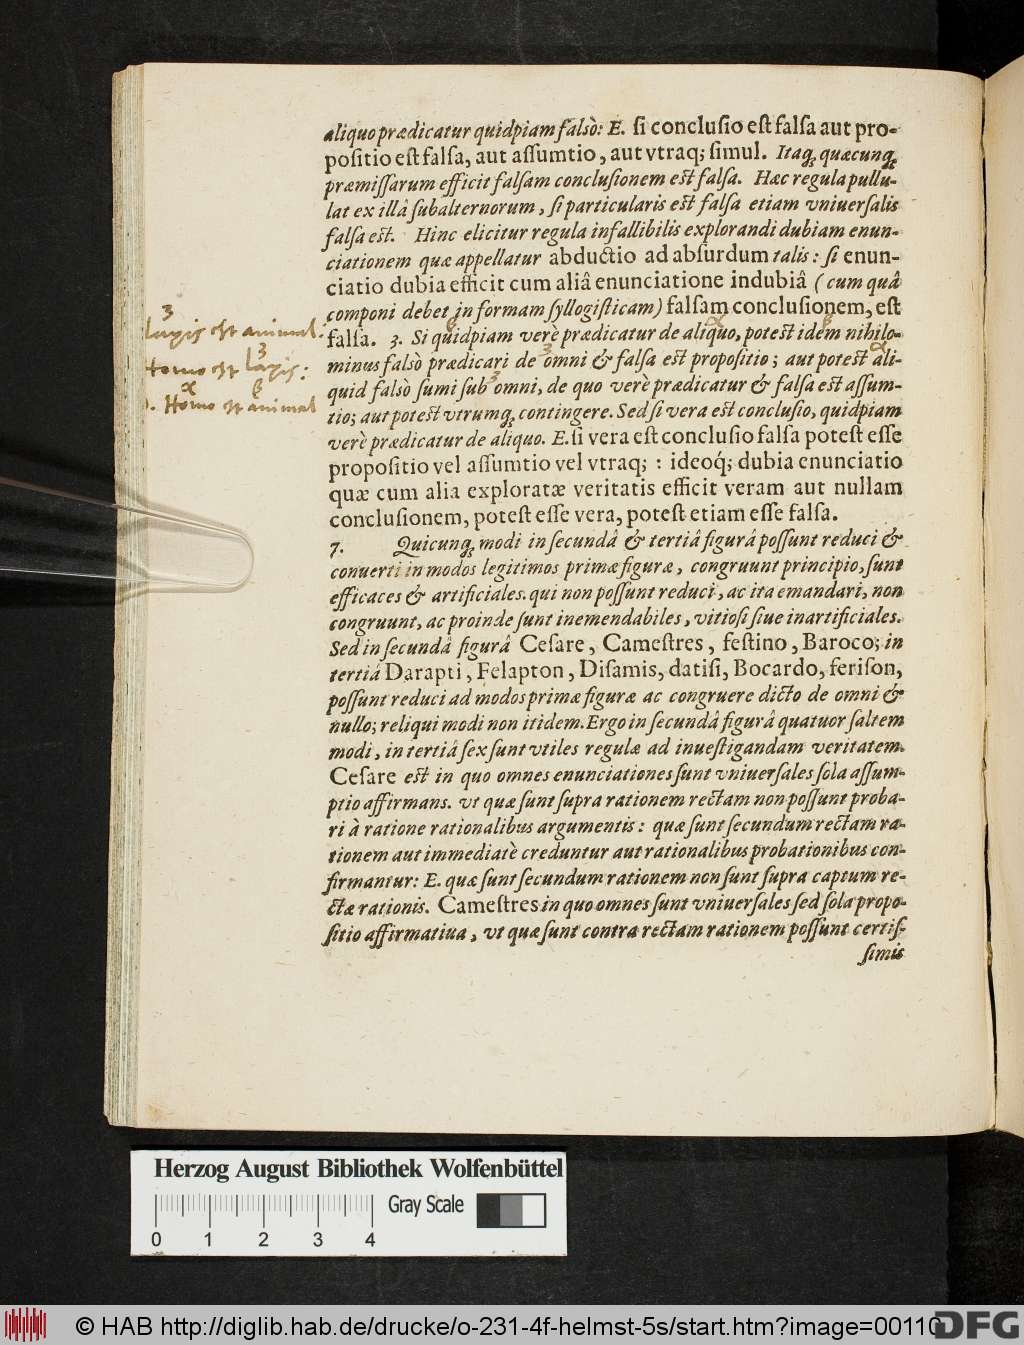 aliquo prædicatur quidpiam falsò: E. ſi concluſio eſt falſa aut pro-
poſitio eſt falſa, aut aſſumtio, aut vtraq; ſimul. Itaq; quæcunq;
præmiſſarum efficit falſam concluſionem eſt falſa. Hæc regula pullu-
lat ex illâ ſubalternorum, ſi particularis eſt falſa etiam vniuerſalis
falſa eſt. Hinc elicitur regula infallibilis explorandi dubiam enun-
ciationem quæ appellatur abductio ad abſurdum talis: ſi enun-
ciatio dubia efficit cum aliâ enunciatione indubiâ (cum quâ
componi debet in formam ſyllogiſticam) falſam concluſionem, eſt
falſa. 3. Si quidpiam verè prædicatur de aliquo, poteſt idem nihilo-
minus falsò prædicari de omni & falſa eſt propoſitio; aut poteſt ali-
quid falsò ſumi ſub omni, de quo verè prædicatur & falſa eſt aſſum-
tio; aut poteſt vtrumq; contingere. Sed ſi vera eſt concluſio, quidpiam
verè prædicatur de aliquo. E. ſi vera eſt concluſio falſa poteſt eſſe
propoſitio vel aſſumtio vel vtraq; : ideoq́; dubia enunciatio
quæ cum alia exploratæ veritatis efficit veram aut nullam
concluſionem, poteſt eſſe vera, poteſt etiam eſſe falſa.
7. Quicunq; modi in ſecundâ & tertiâ figurâ poſſunt reduci &
conuerti in modos legitimos primæ figuræ, congruunt principio, ſunt
efficaces & artificiales. qui non poſſunt reduci, ac ita emandari, non
congruunt, ac proinde ſunt inemendabiles, vitioſi ſiue inartificiales.
Sed in ſecundâ figurâ Ceſare, Cameſtres, feſtino, Baroco; in
tertiâ Darapti, Felapton, Diſamis, datiſi, Bocardo, feriſon,
poſſunt reduci ad modos primæ figuræ ac congruere dicto de omni &
nullo; reliqui modi non itidem. Ergo in ſecundâ figurâ quatuor ſaltem
modi, in tertiâ ſex ſunt vtiles regulæ ad inueſtigandam veritatem.
Ceſare eſt in quo omnes enunciationes ſunt vniuerſales ſola aſſum-
ptio affirmans. vt quæ ſunt ſupra rationem rectam non poſſunt proba-
ri à ratione rationalibus argumentis: quæ ſunt ſecundum rectam ra-
tionem aut immediatè creduntur aut rationalibus probationibus con-
firmantur: E. quæ ſunt ſecundum rationem non ſunt ſupra captum re-
ctæ rationis. Cameſtres in quo omnes ſunt vniuerſales ſed ſola propo-
ſitio affirmatiua, vt quæ ſunt contra rectam rationem poſſunt certiſ-
ſimis
3
Lapis est animal:
3
Homo est Lapis:
α β
Homo est animal
Herzog August Bibliothek Wolfenbüttel
Gray Scale
0 1 2 3 4
© HAB http://diglib.hab.de/drucke/o-231-4f-helmst-5s/start.htm?image=00110
DFG